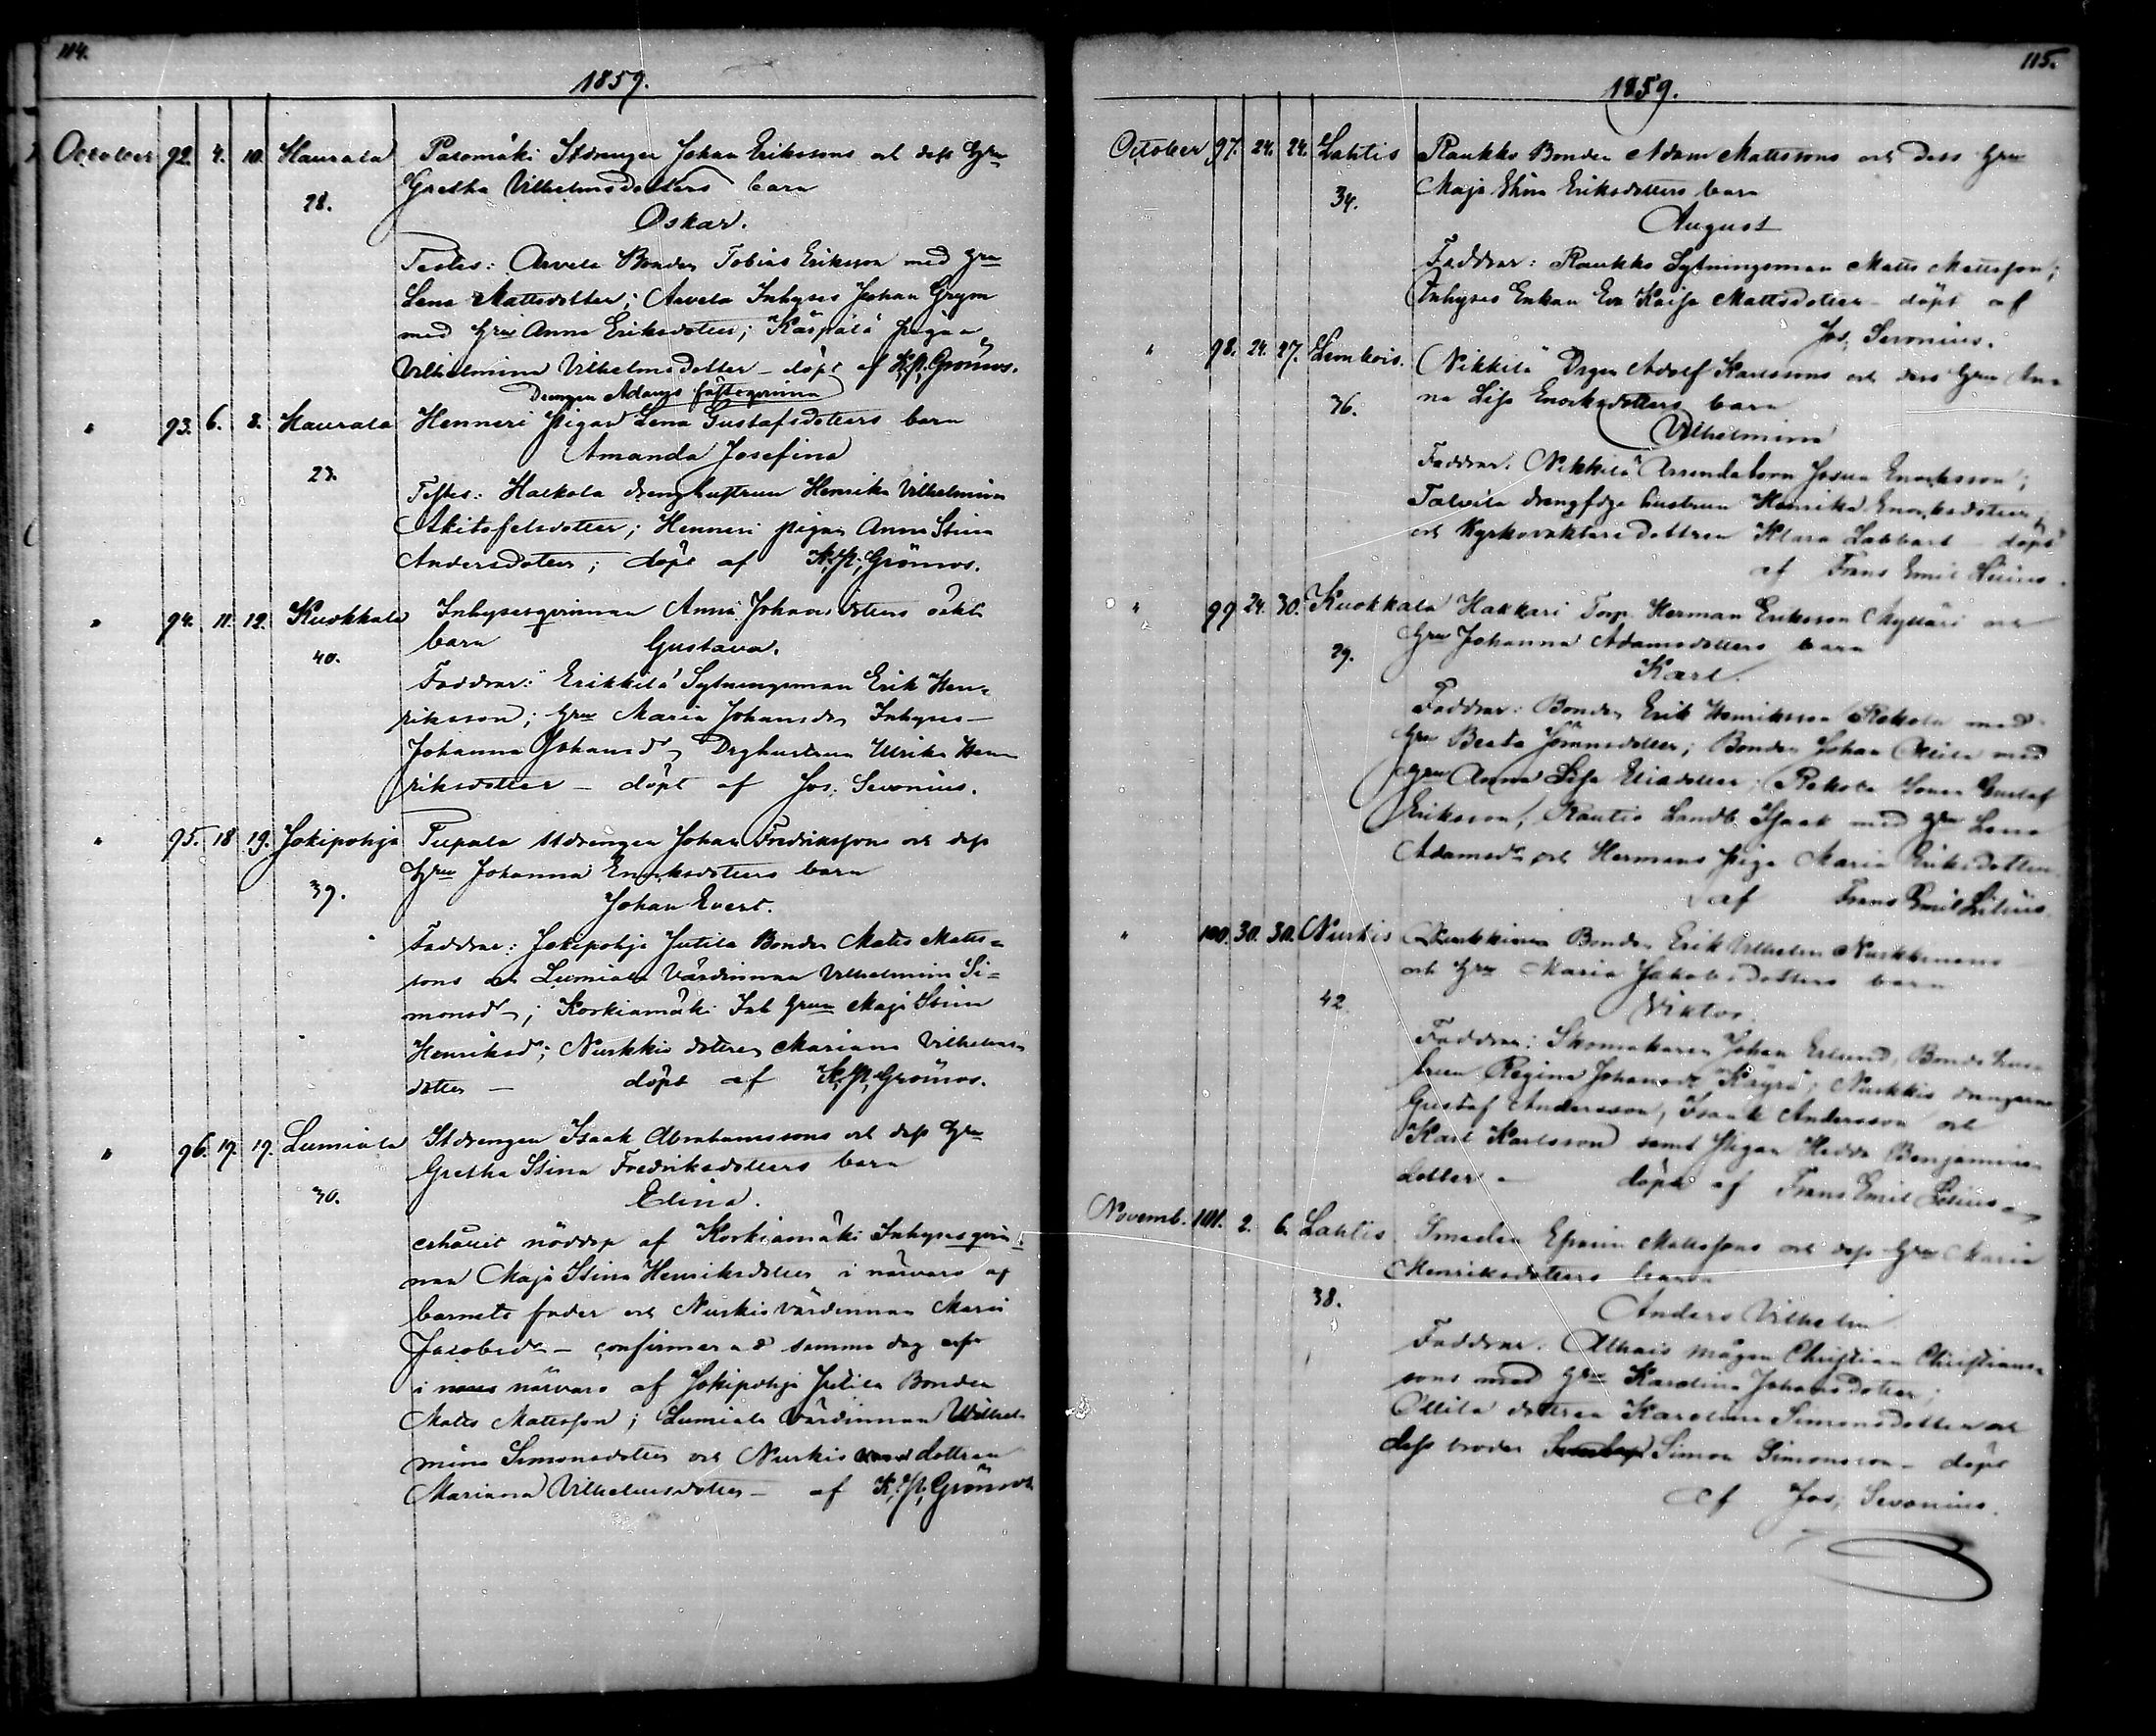 114.
1859.
October 92. 4. 10. Haurala Palomäki Stdrengen Johan Erikssons och dess Hru
28. Gretha Vilhelmsdotters barn
Oskar.
Testes: Arvela Bonden Tobias Eriksson med Hru
Lena Mattsdotter; Arvela Inhyses Johan Grym
med Hru Anna Eriksdotter; Käspälä pigan
Vilhelmina Vilhelmsdotter – döpt af K. H. Grönros.
Drengen Adams fästeqvinna
" 93. 6. 8. Haurala Henneri pigan Lena Gustafsdotters barn
Amanda Josefina
23.
Testes: Halkola drenghustrun Henrika Vilhelmina
Akitofelsdotter; Henneri pigan Anna Stina
Andersdotter; döpt af K. H. Grönros.
" 94. 11. 12. Kuokkala Inhysesqvinnan Anna Johansdotters oäkta
barn Gustava.
40.
Faddrar: Erikkilä Sytningsman Erik Hen-
riksson; Hru Maria Johansdr Inhyses
Johanna Johansdr, Drghustrun Ulrika Hen
riksdotter – döpt af Jos. Sevonius.
" 95. 18 19. Jokipohja Tupala Stdrengen Johan Fredrikssons och dess
39. Hru Johanna Enoksdotters barn
Johan Evert.
Faddrar: Jokipohja Jutila Bonden Matts Matts-
sons och Lumiala Värdinnan Vilhelmina Si-
monsdr; Korkiamäki Inh Hrun Maja Stina
Henriksdr; Nurkkis dottren Mariana Vilhelms-
dotter – döpt af K. H. Grönros.
" 96. 19. 19. Lumiala Stdrengen Isaak Abrahamssons och dess Hru
Gretha Stina Fredriksdotters barn
30. Edina.
erhållit nöddop af Korkiamäki Inhysesqvin-
nan Maja Stina Henriksdotter i närvaro af
barnets fader och Nurkis värdinnan Maria
Jacobsdr – confirmerad samma dag
i närvaro af Jokipohja Jutila Bonden
Matts Mattsson; Lumiala Värdinnan Wilhel
mina Simonsdotter och Nurkis dottren
Mariana Vilhelmsdotter – af K. H. Grönros
115.
1859.
October 97. 24. 24. Lahtis Raukko Bonden Adam Mattssons och dess Hru
34. Maja Stina Eriksdotters barn
August
Faddrar: Raukko Sytningsman Matts Mattsson;
Inhyses Enkan Eva Kaisa Mattsdotter – döpt af
Jos. Sevonius.
" 98. 24. 27. Lembois. Nikkilä Drgen Adolf Karlssons och dess Hru An-
36. na Lisa Enoksdotters barn
Vilhelmina
Faddrar: Nikkilä Arrendatorn Josua Enoksson;
Talvila drengfoge hustrun Henrika Enoksdotter,
och Kyrkovaktare dottren Klara Labbart – döpt
af Frans Emil Lilius.
" 99 24. 30. Kuokkala Hakkari Torp. Herman Eriksson Mylläri och
29. Hru Johanna Adamsdotters barn
Karl.
Faddrar: Bonden Erik Henriksson Rekola med
Hru Beata Jöransdotter; Bonden Johan Ollila med
Hru Anna Lisa Eliadotter; Rekola Sonen Gustaf
Eriksson, Rautio Landb. Isaak med Hru Lena
Adamsdr och Hermans piga Maria Eriksdotter
af Frans Emil Lilius.
" 100. 30. 30. Nurkis Nurkkinen Bonden Erik Vilhelm Nurkkinens
och Hru Maria Jakobsdotters barn
42. Viktor.
Faddrar: Skomakaren Johan Erlund, Bonde hus-
trun Regina Johansdr Käyrä; Nurkkis drengarne
Gustaf Andersson, Isaak Andersson och
Karl Karlsson samt Pigan Hedda Benjamins-
dotter – döpt af Frans Emil Lilius –
Novemb. 101. 2. 6. Lahtis Smeden Efraim Mattssons och dess Hru Maria
Henriksdotters barn
38. Anders Vilhelm
Faddrar: Alhais mågen Christian Christians-
sons med Hru Karolina Johansdotter;
Ollila dottren Karolina Simonsdotter och
dess broder Simon Simonsson – döpt
af Jos. Sevonius.